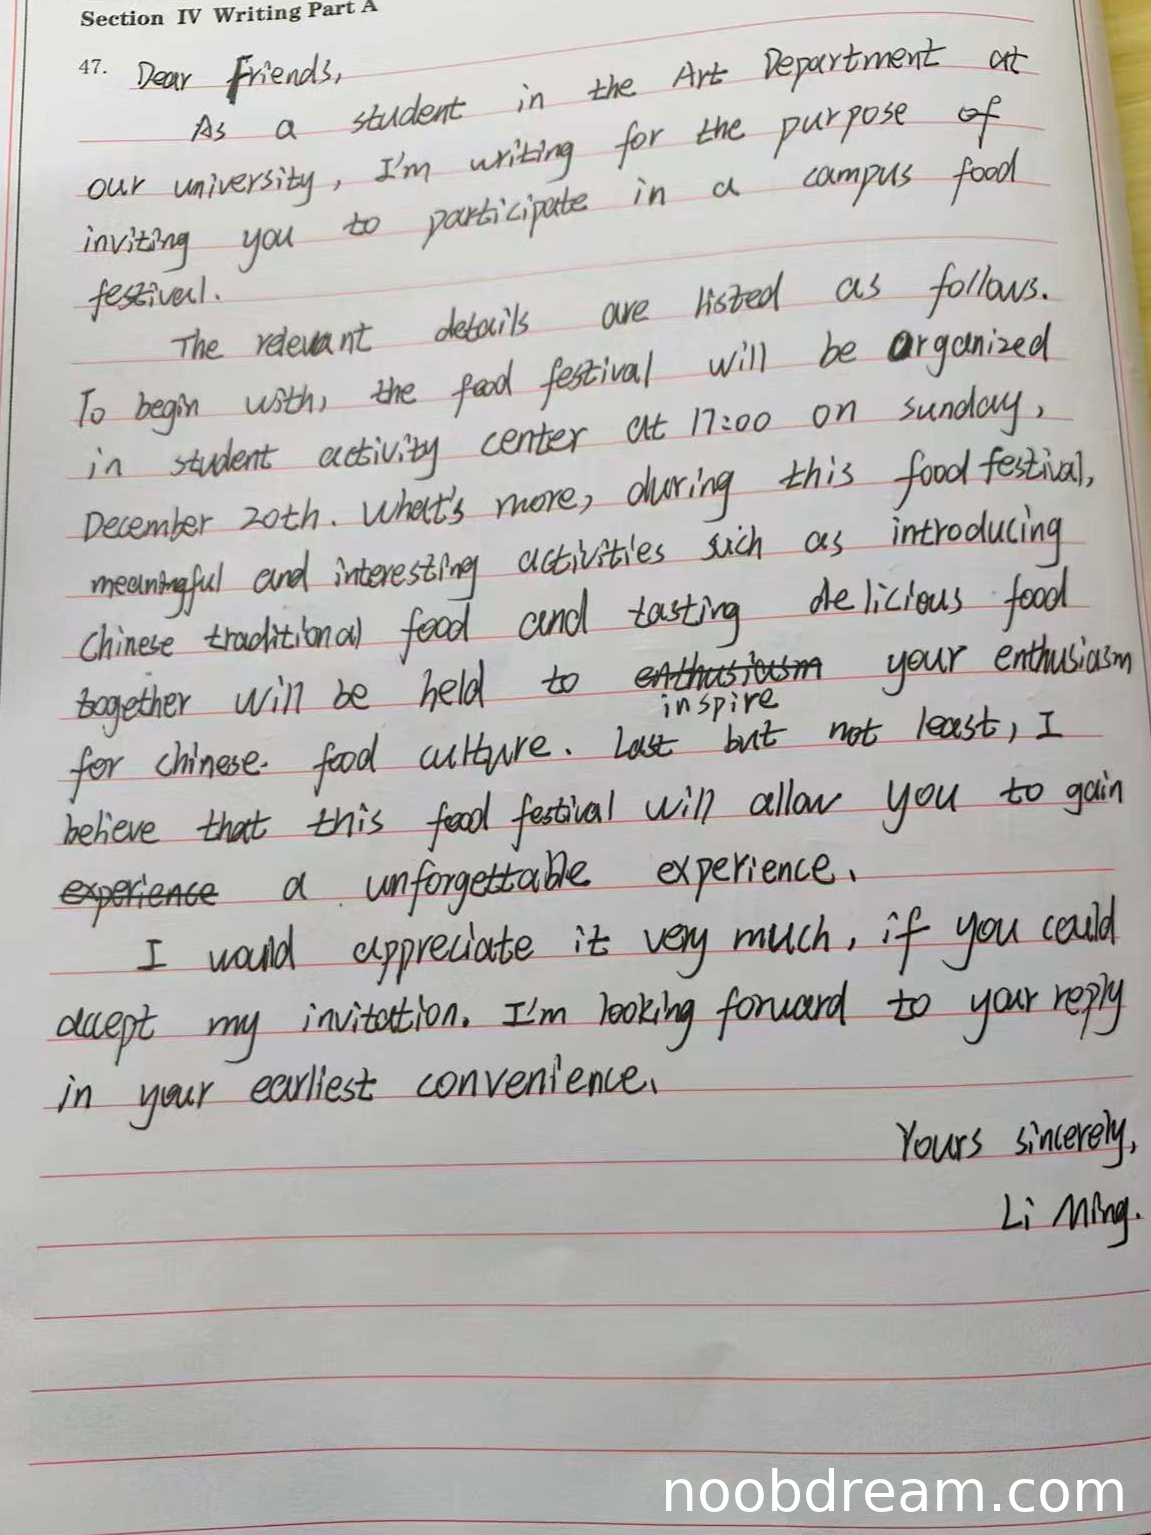 Section IV Writing Part A
47. Dear Friends,
As a student in the Art Department at
our university, I'm writing for the purpose of
inviting you to participate in a campus food
festival.
The relevant details are listed as follows.
To begin with, the food festival will be organized
in student activity center at 17:00 on sunday,
December 20th. What's more, during this food festival,
meaningful and interesting activities such as introducing
Chinese traditional food and tasting delicious food
together will be held to enthusiasm your enthusiasm
inspire
for chinese food culture. Last but not least, I
believe that this food festival will allow you to gain
experience a unforgettable experience.
I would appreciate it very much, if you could
accept my invitation. I'm looking forward to your reply
in your earliest convenience.
Yours sincerely,
Li Ming.
noobdream.com